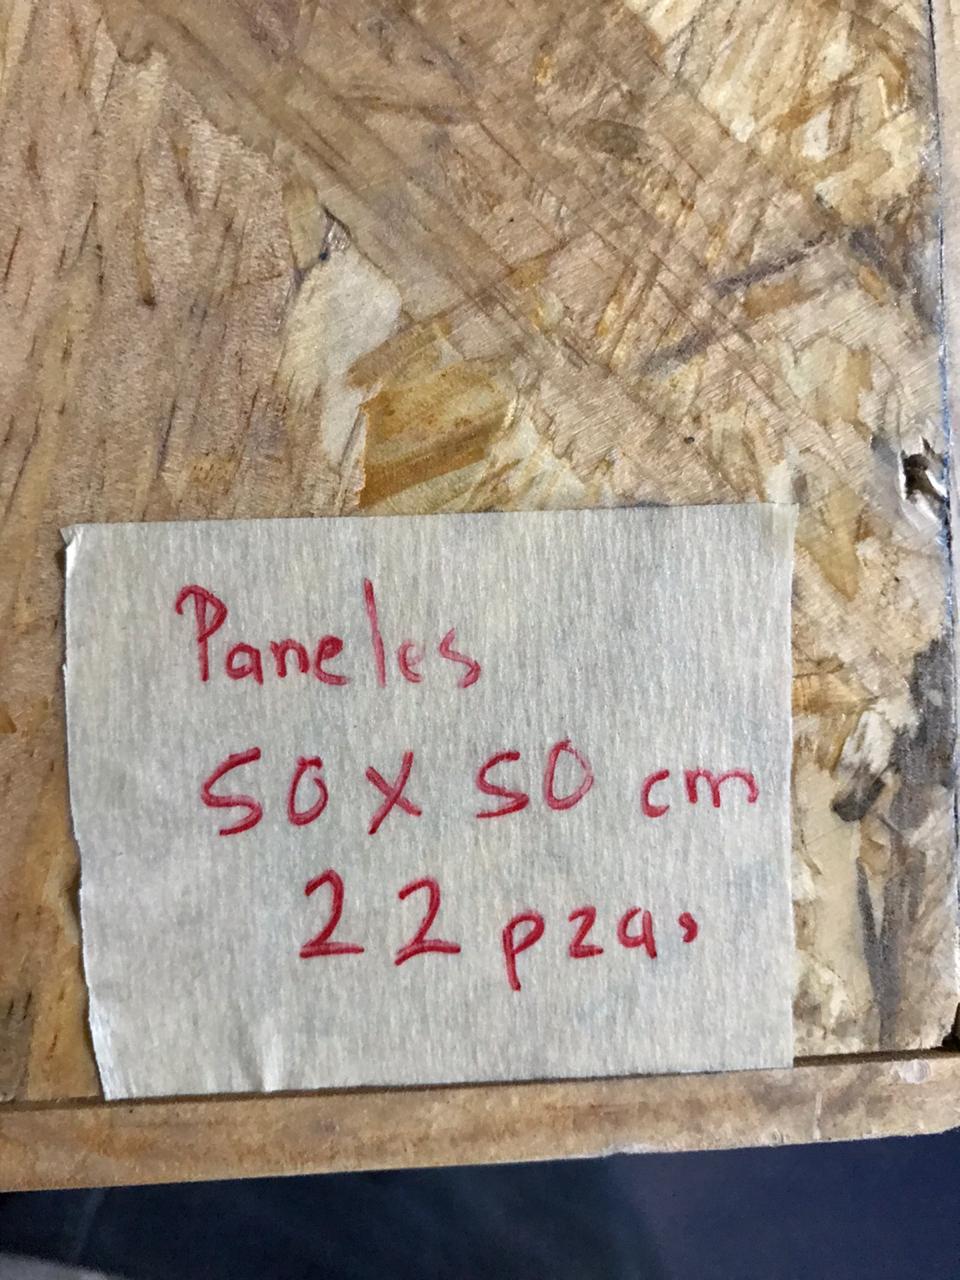 Paneles
50 x 50 cm
22 pzas